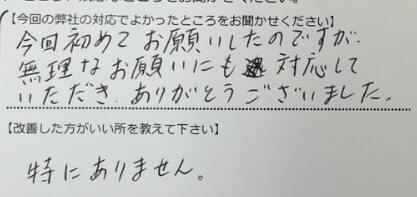 【今回の弊社の対応でよかったところをお聞かせください】
今回初めてお願いしたのですが
無理なお願いにも対応して
いただき、ありがとうございました。
【改善した方がいい所を教えて下さい】
特にありません。